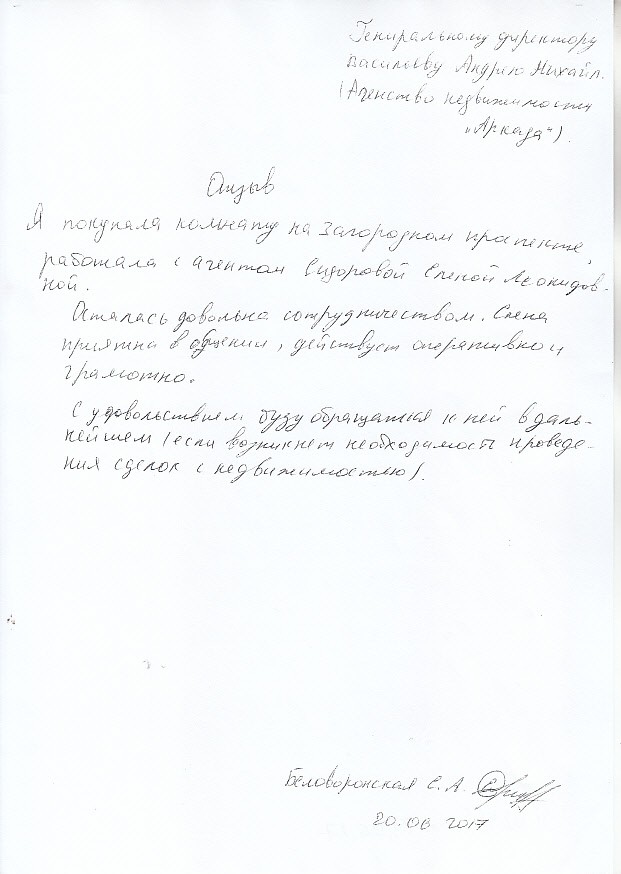 Генеральному директору
Васильеву Андрею Михайл.
(Агенство недвижимости
„Аркада").
Отзыв
Я покупала комнату на Загородном проспекте,
работала с агентом Сидоровой Еленой Леонидов-
ной.
Осталась довольна сотрудничеством. Елена
приятна в общении, действует оперативно и
грамотно.
С удовольствием буду обращаться к ней в даль-
нейшем (если возникнет необходимость проведе-
ния сделок с недвижимостью).
Беловоронская Е. А.
20.06 2017